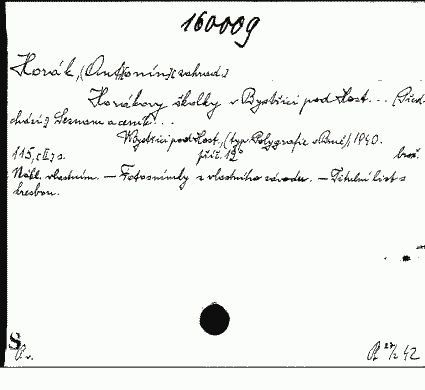 160009
Horák, (Antonín)[zahrad.]
Horákovy školky v Bystřici pod Host. . . (Před-
chází:) Seznam a ceník. . .
Bystřici pod Host., (typ. Polygrafie v Brně,) 1940.
115, [II] s. příč. 12° brož.
Nákl. vlastním. — Fotosnímky z vlastního závodu. — Titulní list s
kresbou.
S
27/2 42